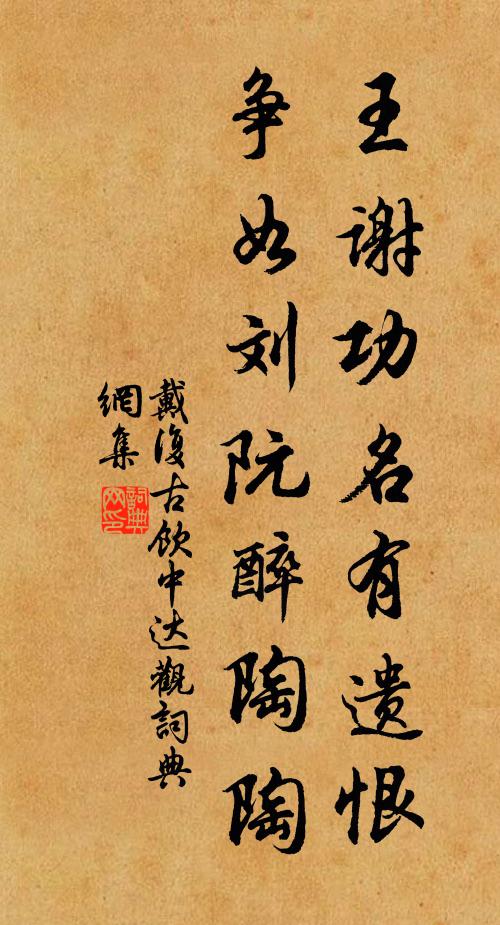 王谢功名有遗恨
争如刘阮醉陶陶
戴復古飲中达觀詞典
網集
詞典
网印